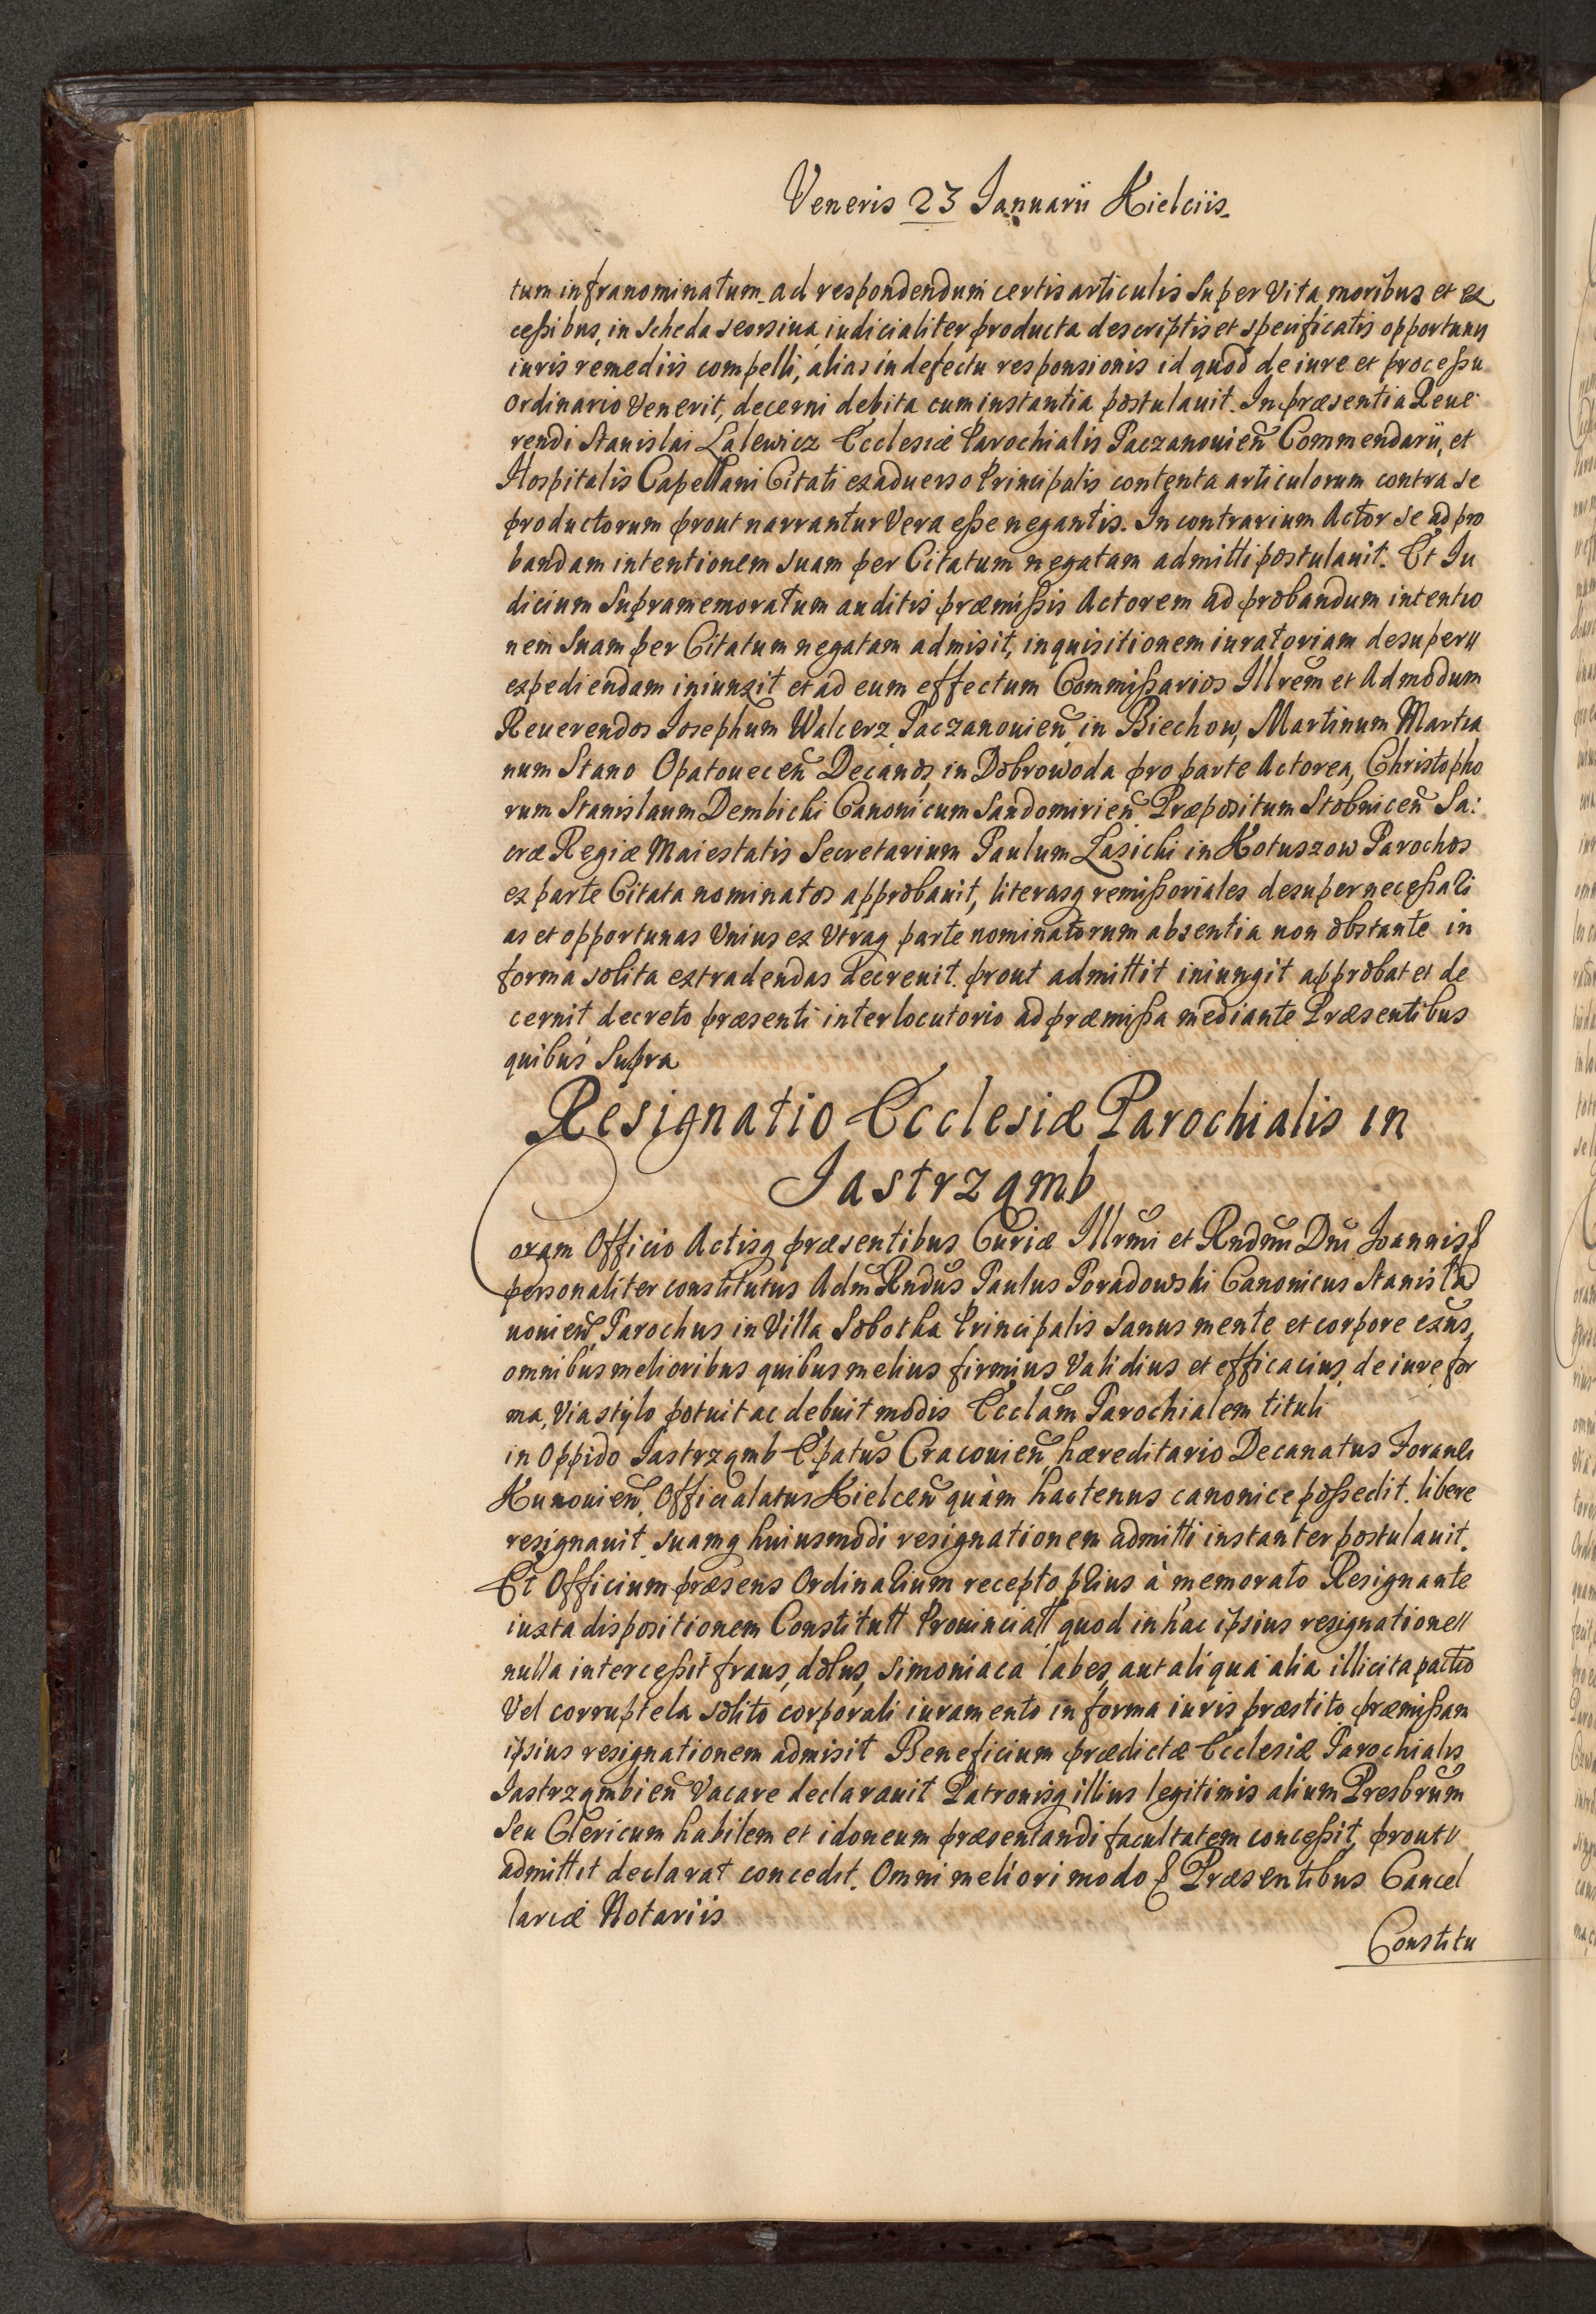 Veneris 23 Januarii Kielciis
tum infranominatum ad respondendum certis articulis super vita moribus et ex
cessibus, in scheda seorsiva iudicialiter producta descriptis et specificatis opportunis
iuris remediis compelli, alias in defectu responsionis id quod de iure et processu
ordinario venerit, decerni debita cum instantia postulauit. In præsentia Reue
rendi Stanislai Lalewicz Ecclesiæ Parochialis Paczanouien Commendarii, et
Hospitalis Capellani Citati ex aduerso Principalis contenta articulorum contra se
productorum prout narrantur vera esse negantis. In contrarium Actor se ad pro
bandam intentionem suam per Citatum negatam admitti postulauit. Et Ju
dicium supramemoratum auditis præmissis Actorem ad probandum intentio
nem suam per Citatum negatam admisit, inquisitionem iuratoriam desuper
expediendam iniunxit et ad eum effectum Commissarios Illrem et Admodum
Reuerendos Josephum Walcerz Paczanouien in Biechow, Martinum Martia
num Stano Opatouecen Decanos, in Dobrowoda pro parte Actorea, Christopho
rum Stanislaum Dembicki Canonicum Sandomirien Præpositum Stobnicen Sa:
cræ Regiæ Maiestatis Secretarium Paulum Lasicki in Kotuszow Parochos
ex parte Citata nominatos approbauit, literasq remissoriales desuper necessari
as et opportunas vnius ex vtraq parte nominatorum absentia non obstante in
forma solita extradendas decreuit. prout admittit iniungit approbat et de
cernit decreto præsenti interlocutorio ad præmissa mediante Præsentibus
quibus supra
Resignatio Ecclesiæ Parochialis in
Jastrząmb
Coram Officio Actisq præsentibus Curiæ Illrmi et Rndmi Dni Joannis &
personaliter constitutus Adm Rndus Paulus Poradowski Canonicus Stanisla
uouien Parochus in Villa Sobotka Principalis sanus mente et corpore exns,
omnibus melioribus quibus melius firmius validius et efficacius, de iure for
ma, via stylo potuit ac debuit modis Ecclam Parochialem tituli
in Oppido Jastrząmb Epatus Cracouien hæreditario Decanatus Foranei
Kunouien Officialatus Kielcen quàm hactenus canonice possedit. libere
resignauit. suamq huiusmodi resignationem admitti instanter postulauit.
Et Officium præsens Ordinarium recepto prius à memorato Resignante
iuxta dispositionem Constitutt Prouinciall quod in hac ipsius resignatione
nulla intercessit fraus, dolus, simoniaca labes, aut aliqua alia illicita pactio
vel corruptela solito corporali iuramento in forma iuris præstito præmissam
ipsius resignationem admisit Beneficium prædictæ Ecclesiæ Parochialis
Jastrząmbien vacare declarauit Patronisq illius legitimis alium Presbrum
seu Clericum habilem et idoneum præsentandi facultatem concessit, prout
admittit declarat concedit. Omni meliori modo & Præsentibus Cancel
lariæ Notariis
Constitu